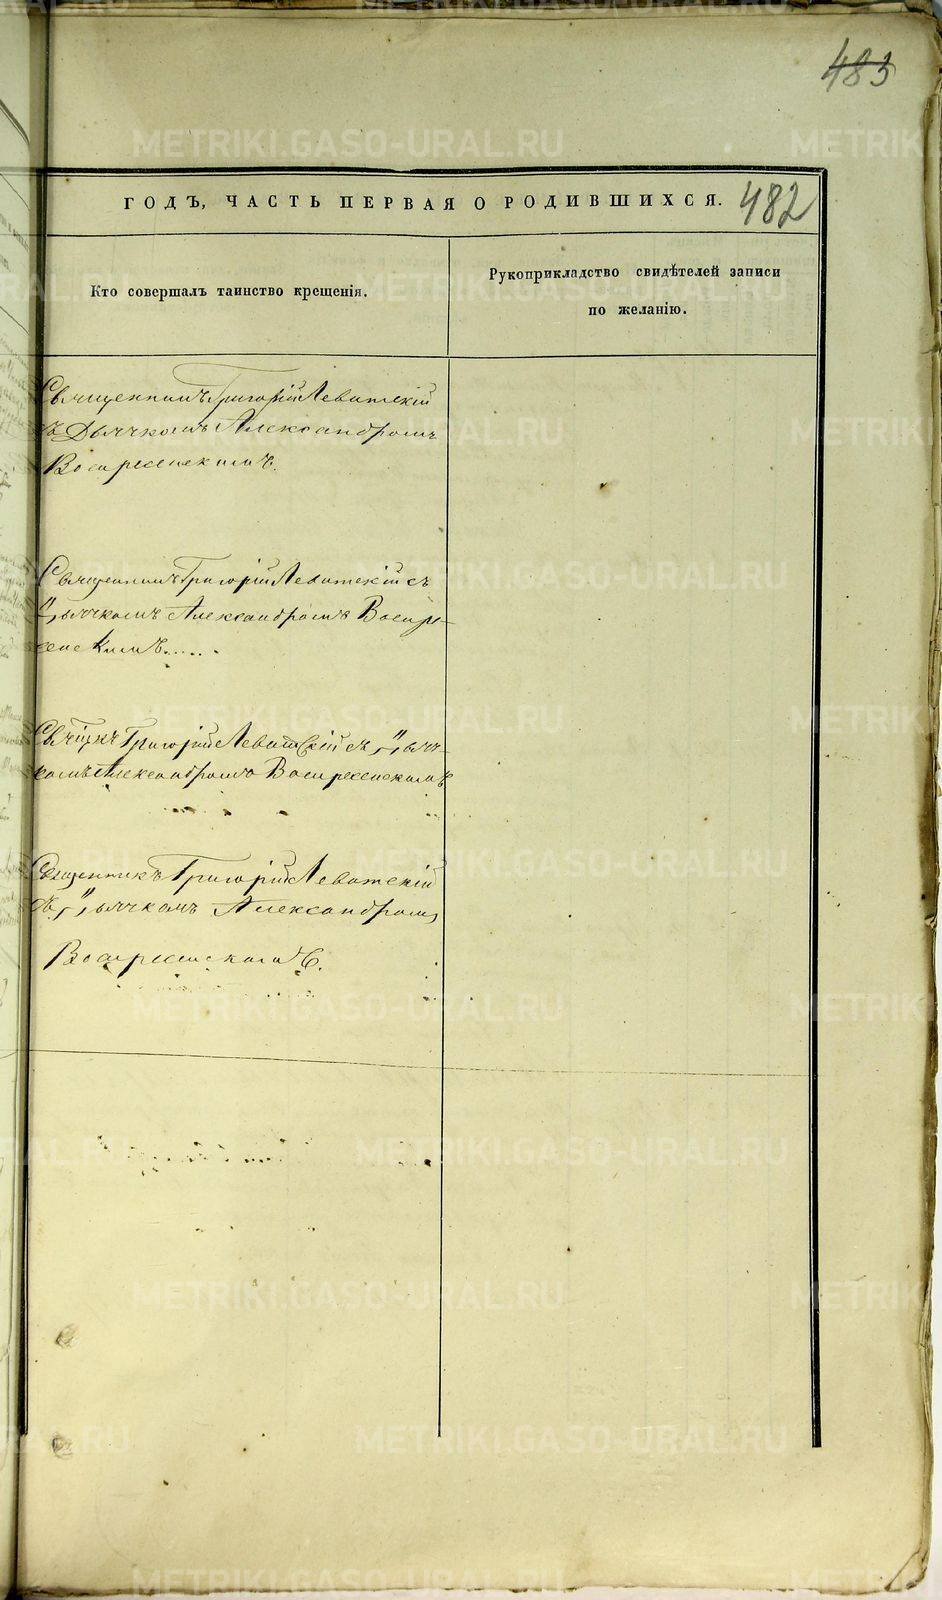 483
ГОДЪ, ЧАСТЬ ПЕРВАЯ О РОДИВШИХСЯ. 482
Кто совершалъ таинство крещенія.
Рукоприкладство свидѣтелей записи
по желанію.
Священникъ Григорій Левитскій
съ Дьячкомъ Александромъ
Воскресенскимъ.
Священникъ Григорій Левитскій съ
Дьячкомъ Александромъ Воскре-
сенскимъ......
Свящ҃икъ Григорій Левитскій съ Дьяч-
комъ Александромъ Воскресенскимъ
Священникъ Григорій Левитскій
съ Дьячкомъ Александромъ
Воскресенскимъ.
METRIKI.GASO-URAL.RU